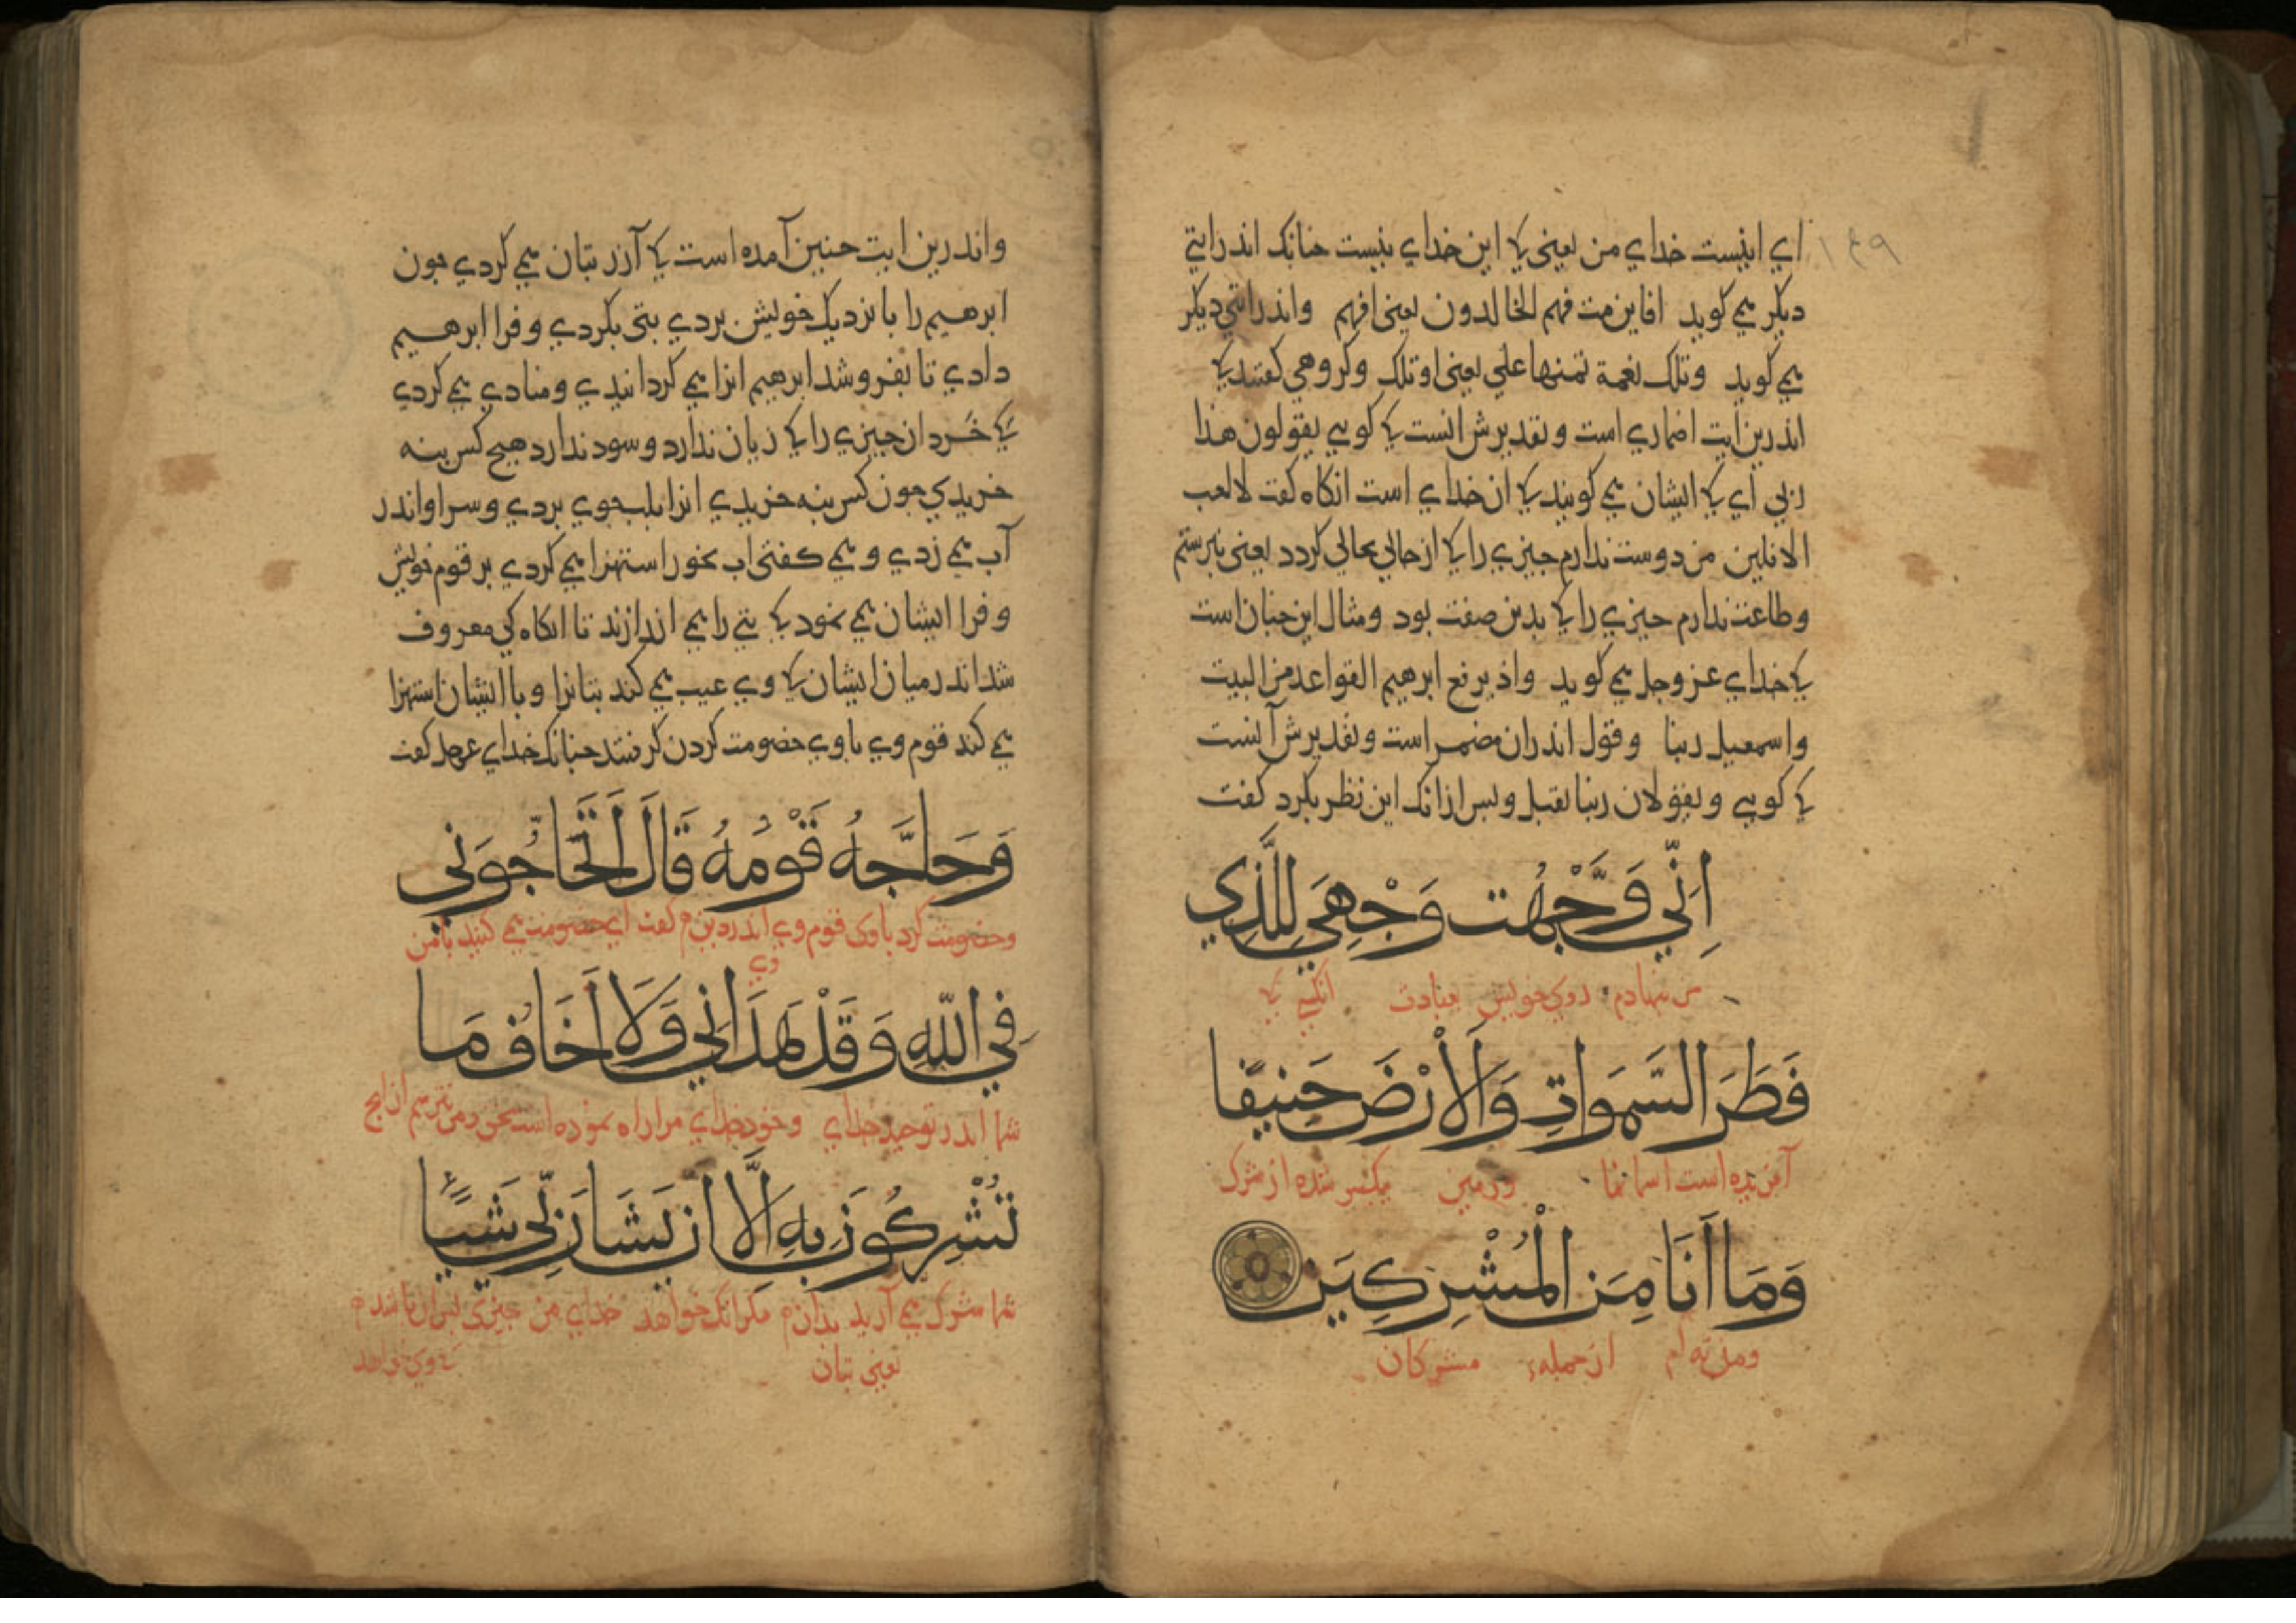 ۱۴۹
اي اينست خداي من يعني كا اين خداي نيست جنانك اندر ايتي
ديكر يمي كويد افاين مت فهم الخالدون يعني افهم واندر ايتي ديكر
يمي كويد وتلك نعمة تمنها علي يعني اوتلك وكروهي كفتند كا
اندرين ايت اضماري است و تقديرش انست كا كويي يقولون هذا
ربي اي كا ايشان يمي كويند كا ان خداي است انكاه كفت لا احب
الافلين من دوست ندارم جيزي را كا از حالي بحالي كردد يعني نبرستم
وطاعت ندارم جيزي را كا بدين صفت بود ومثال اين جنان است
كا خداي عز وجل يمي كويد واذ يرفع ابرهيم القواعد من البيت
واسمعيل ربنا وقول اندران مضمر است و تقديرش آنست
كا كويي ويقولان ربنا تقبل وبس ازانك اين نظر بكرد كفت
اِنّي وَجَّهْتُ وَجْهِيَ لِلَّذِي
من نهادم روي خويش بعبادت انكسي كا
فَطَرَ السَّمَوَاتِ وَالْاَرْضَ حَنِيفًا
آفريده است اسمانها وزمين يكسر شده از شرك
وَمَا اَنَا مِنَ الْمُشْرِكِينَ
ومن نه ام از جمله مشركان
واندرين ايت جنين آمده است كا آزر بتان يمي كردي جون
ابرهيم را با نزديك خويش بردي بتي بكردي و فرا ابرهيم
دادي تا بفروشد ابرهيم انرا يمي كردانيدي و منادي يمي كردي
كا خرد ان جيزي را كا زيان ندارد و سود ندارد هيج كس بنه
خريدي جون كس بنه خريدي انرا بلب جوي بردي و سر او اندر
آب يمي زدي و يمي كفتي اب بخور استهزا يمي كردي بر قوم خويش
و فرا ايشان يمي نمود كا بتي را يمي اندازند تا انكاه كي معروف
شد اندر ميان ايشان كا وي عيب يمي كند بتانرا و با ايشان استهزا
يمي كند قوم وي با وي خصومت كردن كرفتند جنانك خداي عزوجل كفت
وَحَاجَّهُ قَوْمُهُ قَالَ اَتُحَاجُّونِي
وخصومت كرد باوي قوم وي اندر دين كفت اي خصومت يمي كنيد با من
وي
فِي اللّهِ وَقَدْ هَدَانِي وَلَا اَخَافُ مَا
شما اندر توحيد خداي وخود خداي مرا راه نموده است بحق ومن نترسم از انج
تُشْرِكُونَ بِهِ اِلَّا اَنْ يَشَا رَبِّي شَيْئًا
شما شرك يمي آريد بدان مكر انك خواهد خداي من جيزي
يعني بتان كا وي خواهد